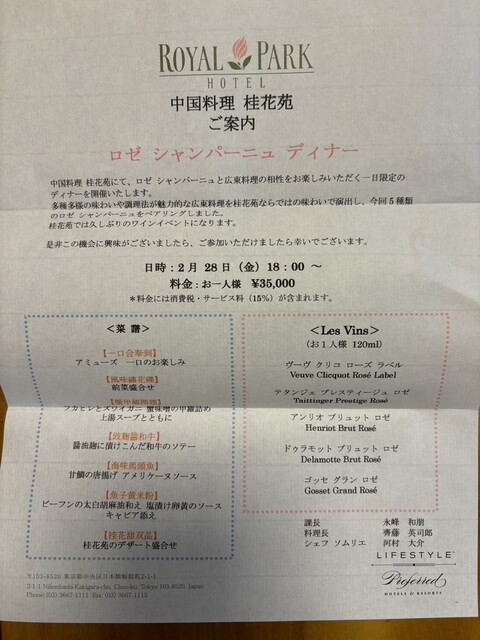 ROYAL PARK
HOTEL
中国料理 桂花苑
ご案内
ロゼ シャンパーニュ ディナー
中国料理 桂花苑にて、ロゼ シャンパーニュと広東料理の相性をお楽しみいただく一日限定の
ディナーを開催いたします。
多種多様の味わいや調理法が魅力的な広東料理を桂花苑ならではの味わいで演出し、今回5種類
のロゼ シャンパーニュをペアリングしました。
桂花苑では久しぶりのワインイベントになります。
是非この機会に興味がございましたら、ご参加いただけましたら幸いでございます。
日時：2月 28日（金）18：00 ～
料金：お一人様 ¥35,000
＊料金には消費税・サービス料（15%）が含まれます。
＜菜 譜＞
【一口合奉到】
アミューズ 一口のお楽しみ
【風味繍花碟】
前菜盛合せ
フカヒレとズワイガニ 蟹味噌の甲羅詰め
上湯スープとともに
【豉麹醤和牛】
醤油麹に漬けこんだ和牛のソテー
【海味馬頭魚】
甘鯛の唐揚げ アメリケーヌソース
【魚子黄米粉】
ビーフンの太白胡麻油和え 塩漬け卵黄のソース
キャビア添え
【桂花甜双品】
桂花苑のデザート盛合せ
＜Les Vins＞
（お1人様 120ml）
ヴーヴ クリコ ローズ ラベル
Veuve Clicquot Rosé Label
テタンジェ プレスティージュ ロゼ
Taittinger Prestige Rosé
アンリオ ブリュット ロゼ
Henriot Brut Rosé
ドゥラモット ブリュット ロゼ
Delamotte Brut Rosé
ゴッセ グラン ロゼ
Gosset Grand Rosé
課長 永峰 和朋
料理長 齊藤 英司郎
シェフ ソムリエ 河村 大介
LIFESTYLE
Preferred
HOTELS & RESORTS
〒103-8520 東京都中央区日本橋蛎殻町2-1-1
2-1-1 Nihonbashi-Kakigara-cho, Chuo-ku, Tokyo 103-8520, Japan
Phone: (03) 3667-1111 Fax: (03) 3667-1115